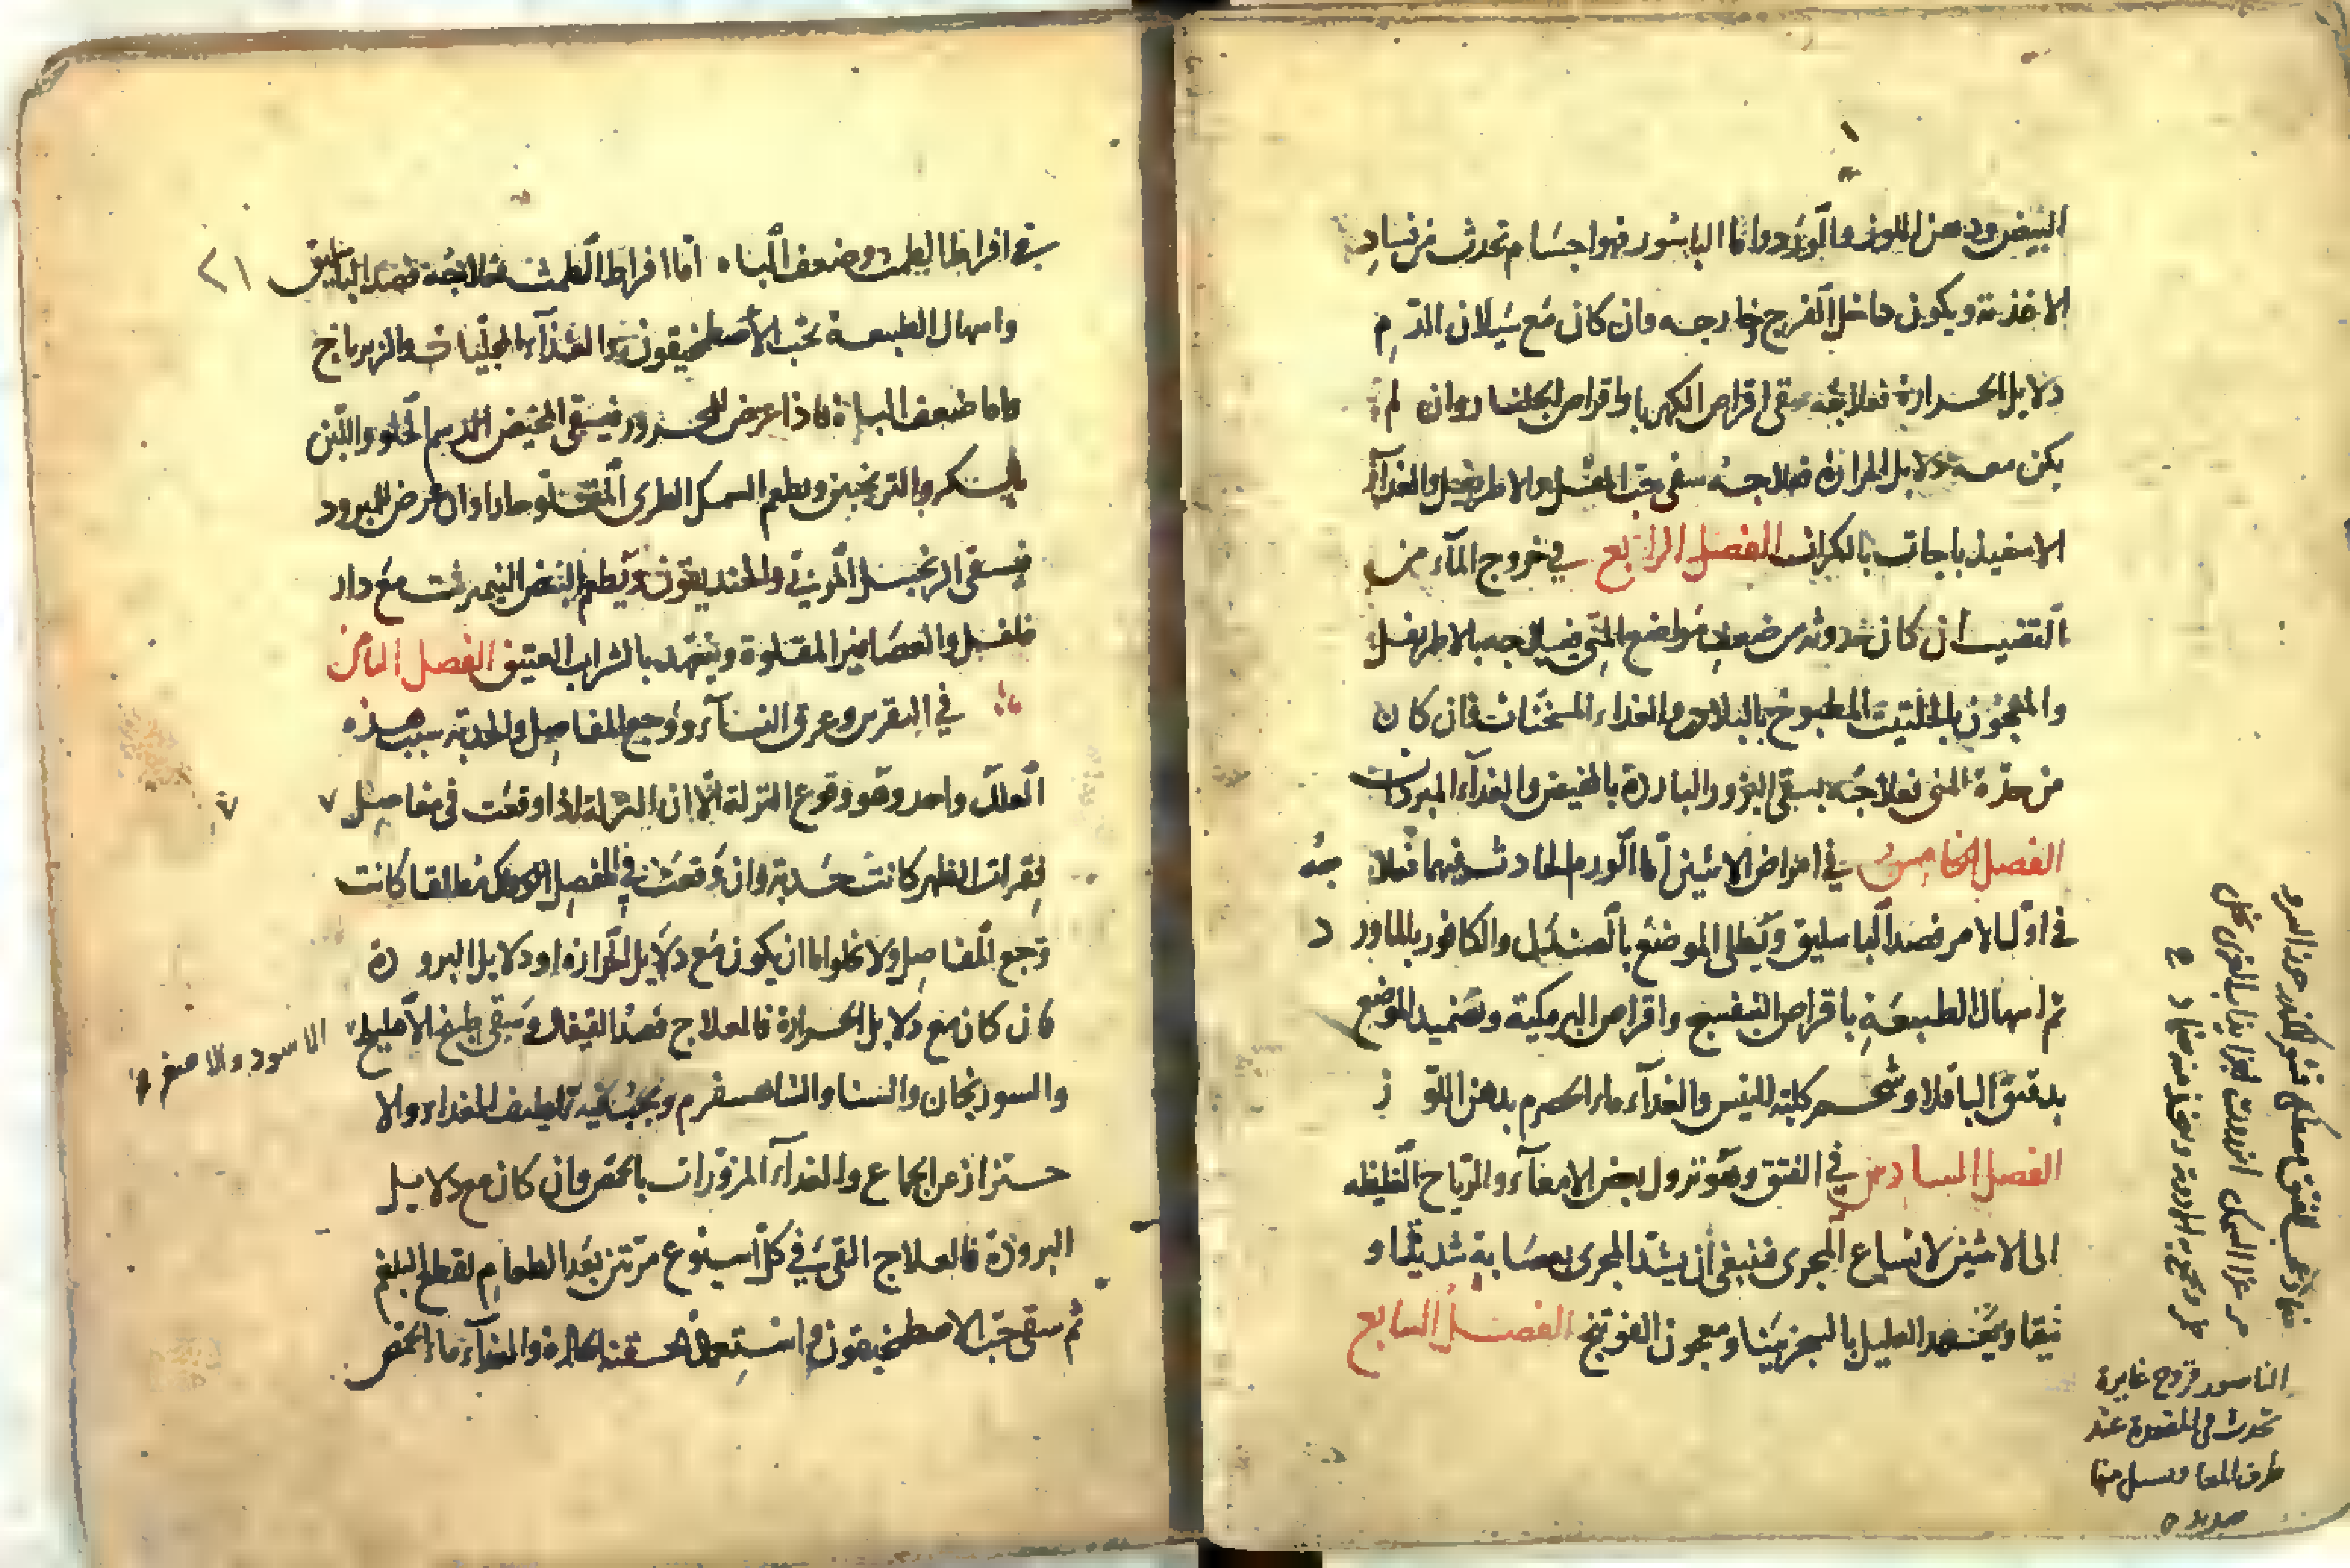 البيض ودهن اللوز والورد واما الباسور فهو اجسام تحدث من فساد
الاغذية ويكون داخل الفرج وخارجه فان كان مع سيلان الدم
دلايل الحرارة فعلاجه سقى اقراص الكهربا واقراص الجلنار وان لم
يكن معه دلايل الحرارة فعلاجه سقى حب المقل والاطريفل والغذآء
الاسفيذباجات بالكراث الفصل الرابع في خروج المآء من
القضيب ان كان حدوثه من ضعف مواضع المنى فيعالجه بالاطريفل
والمعجون بالحلتيت المطبوخ بالبلادر والغذاء المسخنات فان كان
من حدة المنى فعلاجه بسقى البزور الباردة بالمخيض والغذآء المبردات
الفصل الخامس في امراض الانثيين اما الورم الحادث فيهما فعلاجه
في اول الامر فصد الباسليق ويطلى الموضع بالصندل والكافور بالماورد
ثم اسهال الطبيعة باقراص البنفسج واقراص البرمكية وتضميد الموضع
بدقيق الباقلا وشحم كلية التيس والغذآء ماء الحصرم بدهن اللوز
الفصل السادس في الفتق وهو نزول بعض الامعآء والرياح الغليظه
الى الانثيين لاتساع المجرى فينبغى ان يشد المجرى بعصابة شديدا و
ثيقا ويتعهد العليل بالسجزينا ومعجون الفوتنج الفصل السابع
الناسور قروح غايرة
تحدث في المقعدة عند
طرف المعا ويسيل منها
صديد ه
في افراط الطمث وضعف الباه اما افراط الطمث فعلاجه فصد الباسليق
٢١
واسهال الطبيعة بحب الاصطخيقون والغذآء الحليات والزيرباج
واما ضعف الباه فاذا عرض للمحرور فيسقى المخيض الدسم الحلو واللبن
بالسكر والترنجبين ويطعم السمك الطرى المقلو حارا وان عرض للمبرود
فيسقى الزنجبيل المربى والحنديقون ويطعم البيض النيمبرشت مع دار
فلفل والعصافير المقلوة ويتعهد بالشراب العتيق الفصل الثامن
في النقرس وعرق النسآء ووجع المفاصل والحدبة سبب هذه
العلل واحد وهو وقوع النزلة الا ان النزلة اذا وقعت في مفاصل
فقرات الظهر كانت حدبة وان وقعت في المفصل كانت
وجع المفاصل ولا يخلوا اما ان يكون مع دلايل الحرارة او دلايل البرودة
فان كان مع دلايل الحرارة فالعلاج فصد القيفال وسقى طبيخ الاهليلج
الاسود والاصفر
والسورنجان والسنا والشاهسفرم ويجب فيه تلطيف الغداء والا
حتراز من الجماع والغذآء المزورات بالحمص وان كان مع دلايل
البرودة فالعلاج القى في كل اسبوع مرتين بعد الطعام لقطع البلغم
ثم سقى حب الاصطخيقون واستعمال الحقنة الحادة والغذآء ماء الحمص